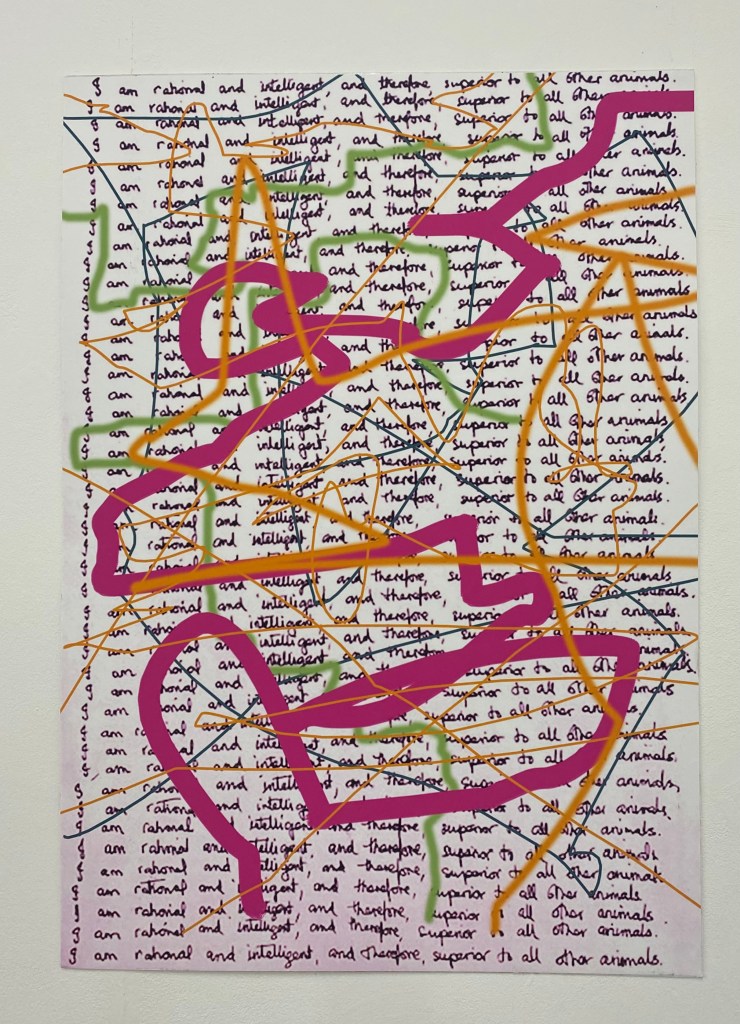 I am rational and intelligent, and therefore, superior to all other animals.
I am rational and intelligent, and therefore, superior to all other animals.
I am rational and intelligent, and therefore, superior to all other animals.
I am rational and intelligent, and therefore, superior to all other animals.
I am rational and intelligent, and therefore, superior to all other animals.
I am rational and intelligent, and therefore, superior to all other animals.
I am rational and intelligent, and therefore, superior to all other animals.
I am rational and intelligent, and therefore, superior to all other animals.
I am rational and intelligent, and therefore, to all other animals.
I am rational and intelligent, and therefore, superior all other animals.
I am rational and intelligent, and therefore, superior to all other animals.
I am rational and and therefore, superior to all other animals.
I am rational and therefore, superior to all other animals.
I am and therefore, superior to all other animals.
I am rational and superior to all other animals.
I am rational and to all other animals.
I am rational and intelligent, and therefore, superior to all other animals.
I am rational and and therefore, superior to all other animals.
I am rational intelligent, and therefore, superior to all other animals.
I am rational intelligent, and therefore, superior to all other animals.
I am and intelligent, and therefore, superior to all other animals.
I rational and intelligent, and therefore, superior to all other animals.
I rational and intelligent, and therefore, superior to all other animals.
I am rational and intelligent, and therefore, superior to all other animals.
I am rational and intelligent, and therefore, to all other animals.
I am rational and intelligent to all other animals.
I and intelligent, and therefore, to all other animals.
I am rational and intelligent, and therefore, all other animals.
I am rational and intelligent, and therefore, superior all other animals.
I am rational and intelligent, and therefore, to all other animals.
I am rational intelligent, and therefore, all other animals.
I am and intelligent superior to all other animals.
I am and superior to all other
I am and superior to all other animals.
I am and therefore, superior to all other animals.
I am and and therefore, superior to all other animals.
I am rational and intelligent, and therefore, animals.
I am rational and and therefore, superior to all other animals.
I am rational and intelligent, and therefore, superior to all other animals.
I am rational and intelligent, and therefore, superior to all other animals.
I am rational intelligent, and therefore, superior to all other animals.
I am rational and and therefore, superior to all other animals
I am rational and and therefore, superior to all other animals
I am rational and intelligent, and therefore, superior to all other animals.
I am rational and intelligent, and therefore, superior to all other animals.